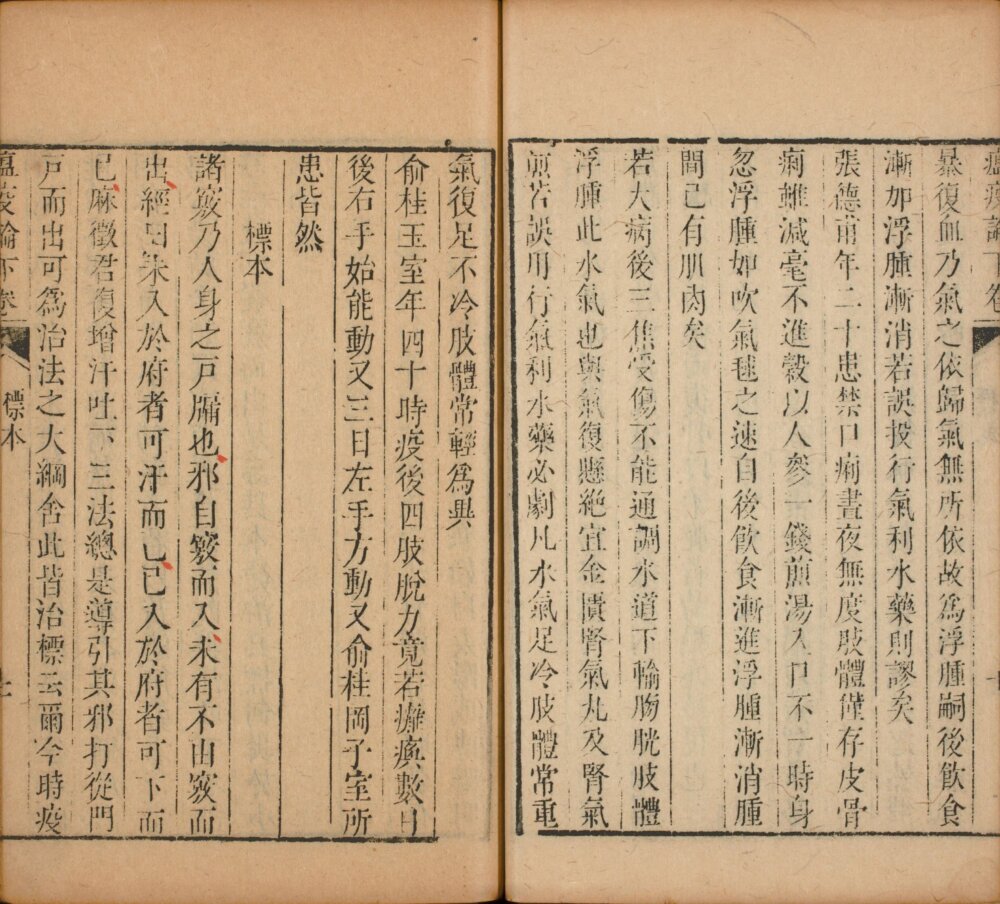 瘟疫論下卷
暴復血乃氣之依歸氣無所依故爲浮腫嗣後飲食
漸加浮腫漸消若誤投行氣利水藥則謬矣
張德甫年二十患禁口痢晝夜無度肢體僅存皮骨
痢雖減毫不進穀以人參一錢煎湯入口不一時身
忽浮腫如吹氣毬之速自後飲食漸進浮腫漸消腫
間已有肌肉矣
若大病後三焦受傷不能通調水道下輸膀胱肢體
浮腫此水氣也與氣復懸絕宜金匱腎氣丸及腎氣
煎若誤用行氣利水藥必劇凡水氣足冷肢體常重
氣復足不冷肢體常輕爲異
俞桂玉室年四十時疫後四肢脫力竟若癱瘓數日
後右手始能動又三日左手方動又俞桂岡子室所
患皆然
標本
諸竅乃人身之戸牖也邪自竅而入未有不由竅而
出經曰未入於府者可汗而已已入於府者可下而
已麻徵君復增汗吐下三法總是導引其邪打從門
戸而出可爲治法之大綱舍此皆治標云爾今時疫
瘟疫論下卷
標本